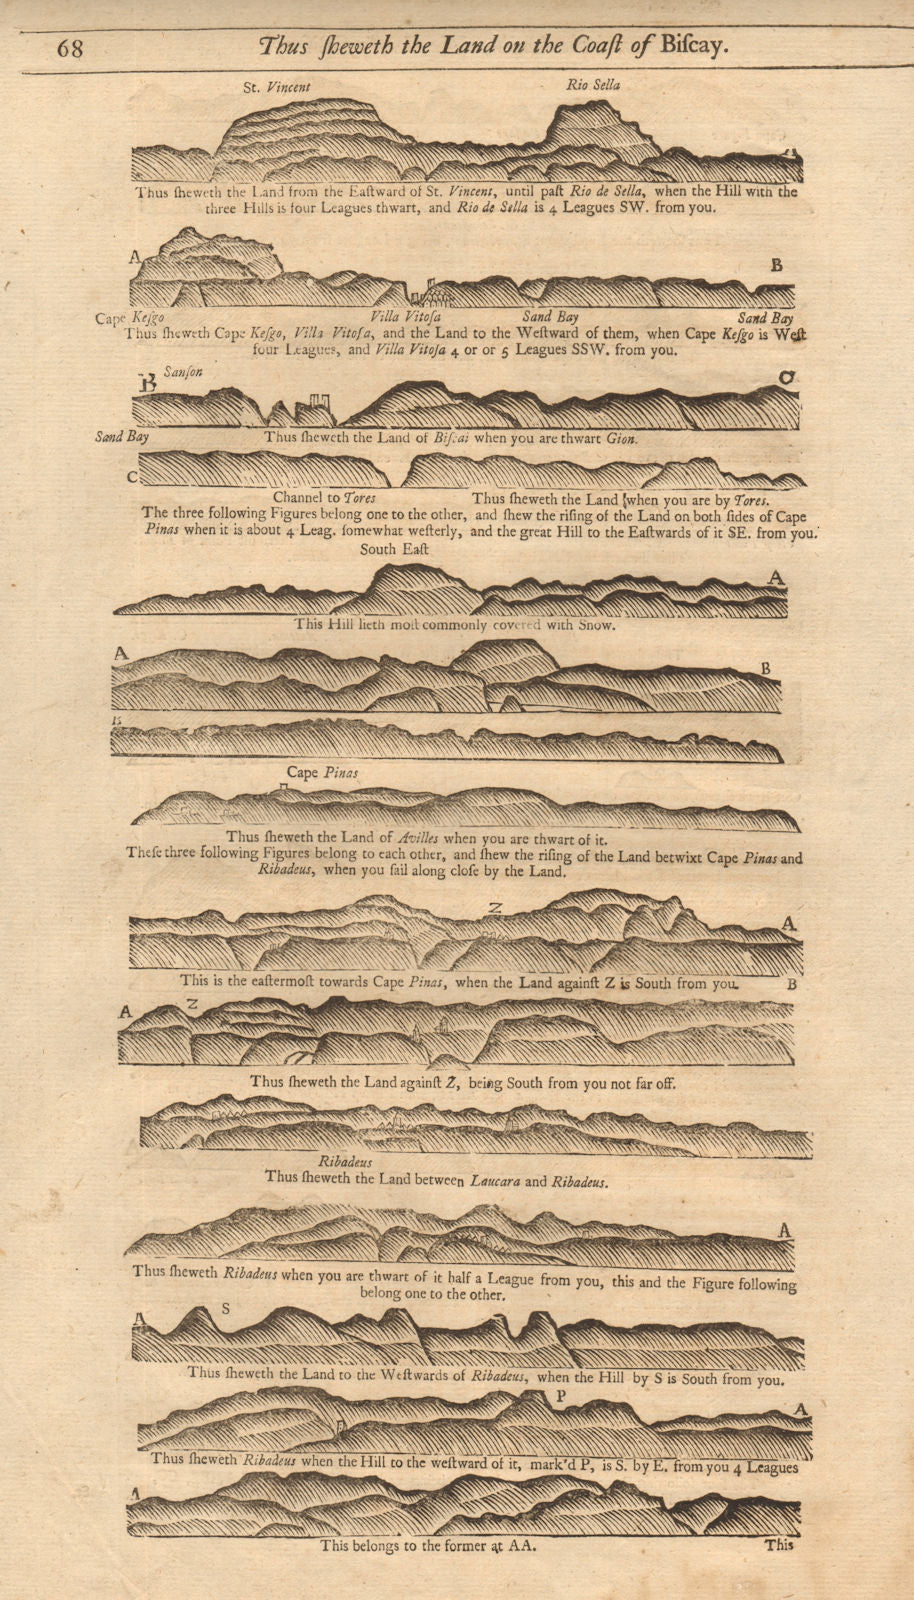 68
Thus ſheweth the Land on the Coaſt of Biſcay.
St. Vincent
Rio Sella
A
Thus ſheweth the Land from the Eaſtward of St. Vincent, until paſt Rio de Sella, when the Hill with the
three Hills is four Leagues thwart, and Rio de Sella is 4 Leagues SW. from you.
A
B
Cape Keſgo
Villa Vitoſa
Sand Bay
Sand Bay
Thus ſheweth Cape Keſgo, Villa Vitoſa, and the Land to the Weſtward of them, when Cape Keſgo is Weſt
four Leagues, and Villa Vitoſa 4 or or 5 Leagues SSW. from you.
B
Sanſon
C
Sand Bay
Thus ſheweth the Land of Biſcai when you are thwart Gion.
C
Channel to Tores
Thus ſheweth the Land when you are by Tores.
The three following Figures belong one to the other, and ſhew the riſing of the Land on both ſides of Cape
Pinas when it is about 4 Leag. ſomewhat weſterly, and the great Hill to the Eaſtwards of it SE. from you.
South Eaſt
A
This Hill lieth moſt commonly covered with Snow.
A
B
B
Cape Pinas
Thus ſheweth the Land of Avilles when you are thwart of it.
Theſe three following Figures belong to each other, and ſhew the riſing of the Land betwixt Cape Pinas and
Ribadeus, when you ſail along cloſe by the Land.
Z
A
This is the eaſtermoſt towards Cape Pinas, when the Land againſt Z is South from you.
B
A
Z
Thus ſheweth the Land againſt Z, being South from you not far off.
Ribadeus
Thus ſheweth the Land between Laucara and Ribadeus.
A
Thus ſheweth Ribadeus when you are thwart of it half a League from you, this and the Figure following
belong one to the other.
A
S
Thus ſheweth the Land to the Weſtwards of Ribadeus, when the Hill by S is South from you.
P
A
Thus ſheweth Ribadeus when the Hill to the weſtward of it, mark'd P, is S. by E. from you 4 Leagues
A
This belongs to the former at AA.
This